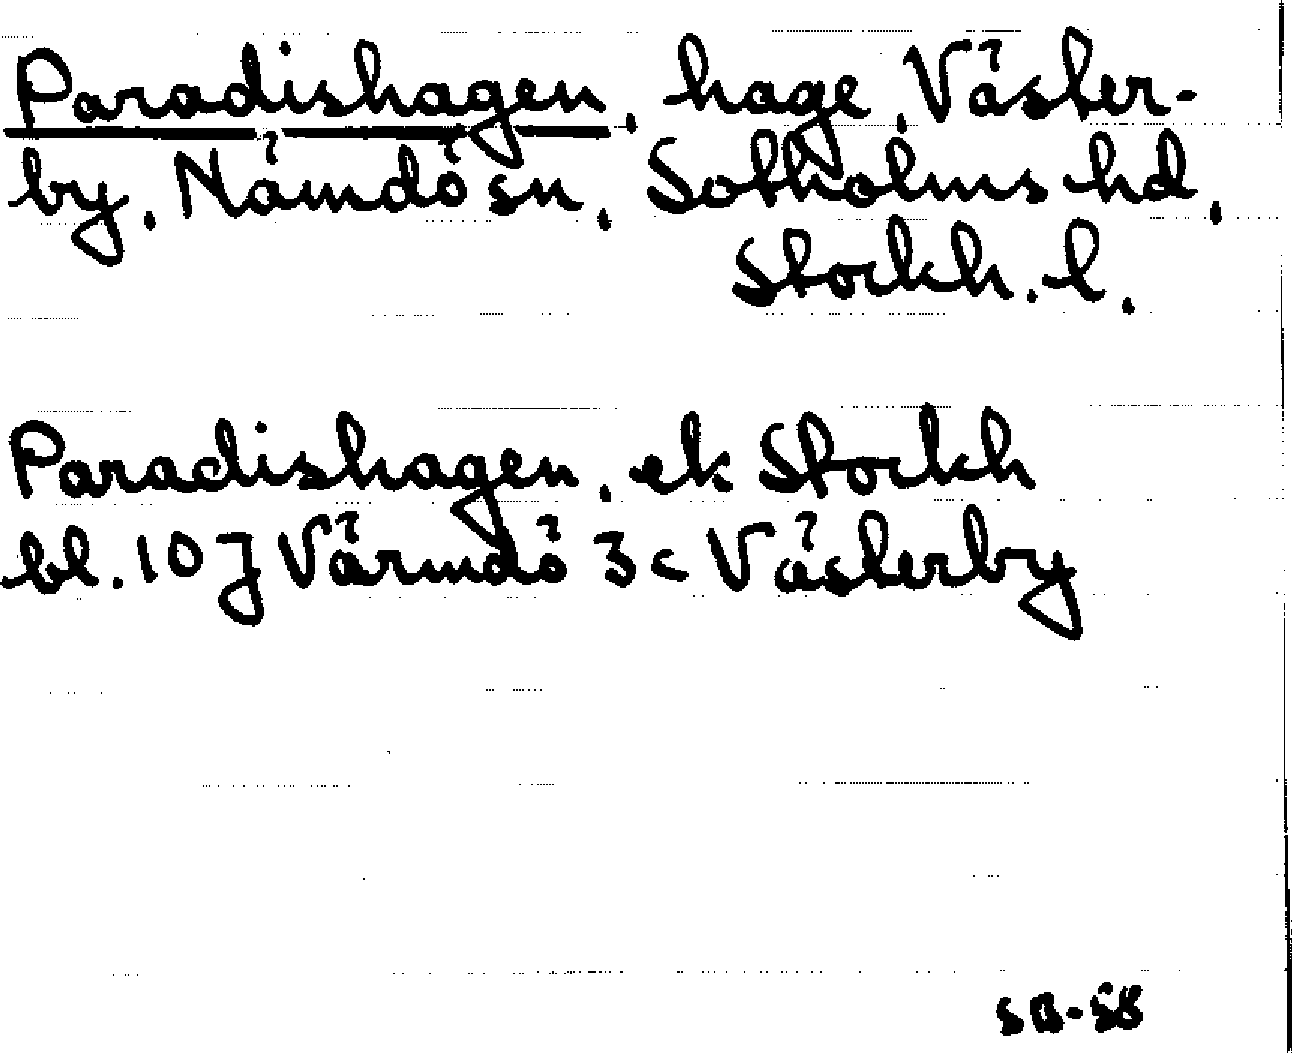 Paradishagen, hage, Väster-
by, Nämdö sn, Sotholms hd,
Stockh. l.
Paradishagen, ek Stockh
bl. 10 J Värmdö 3 c Västerby
SB-SB